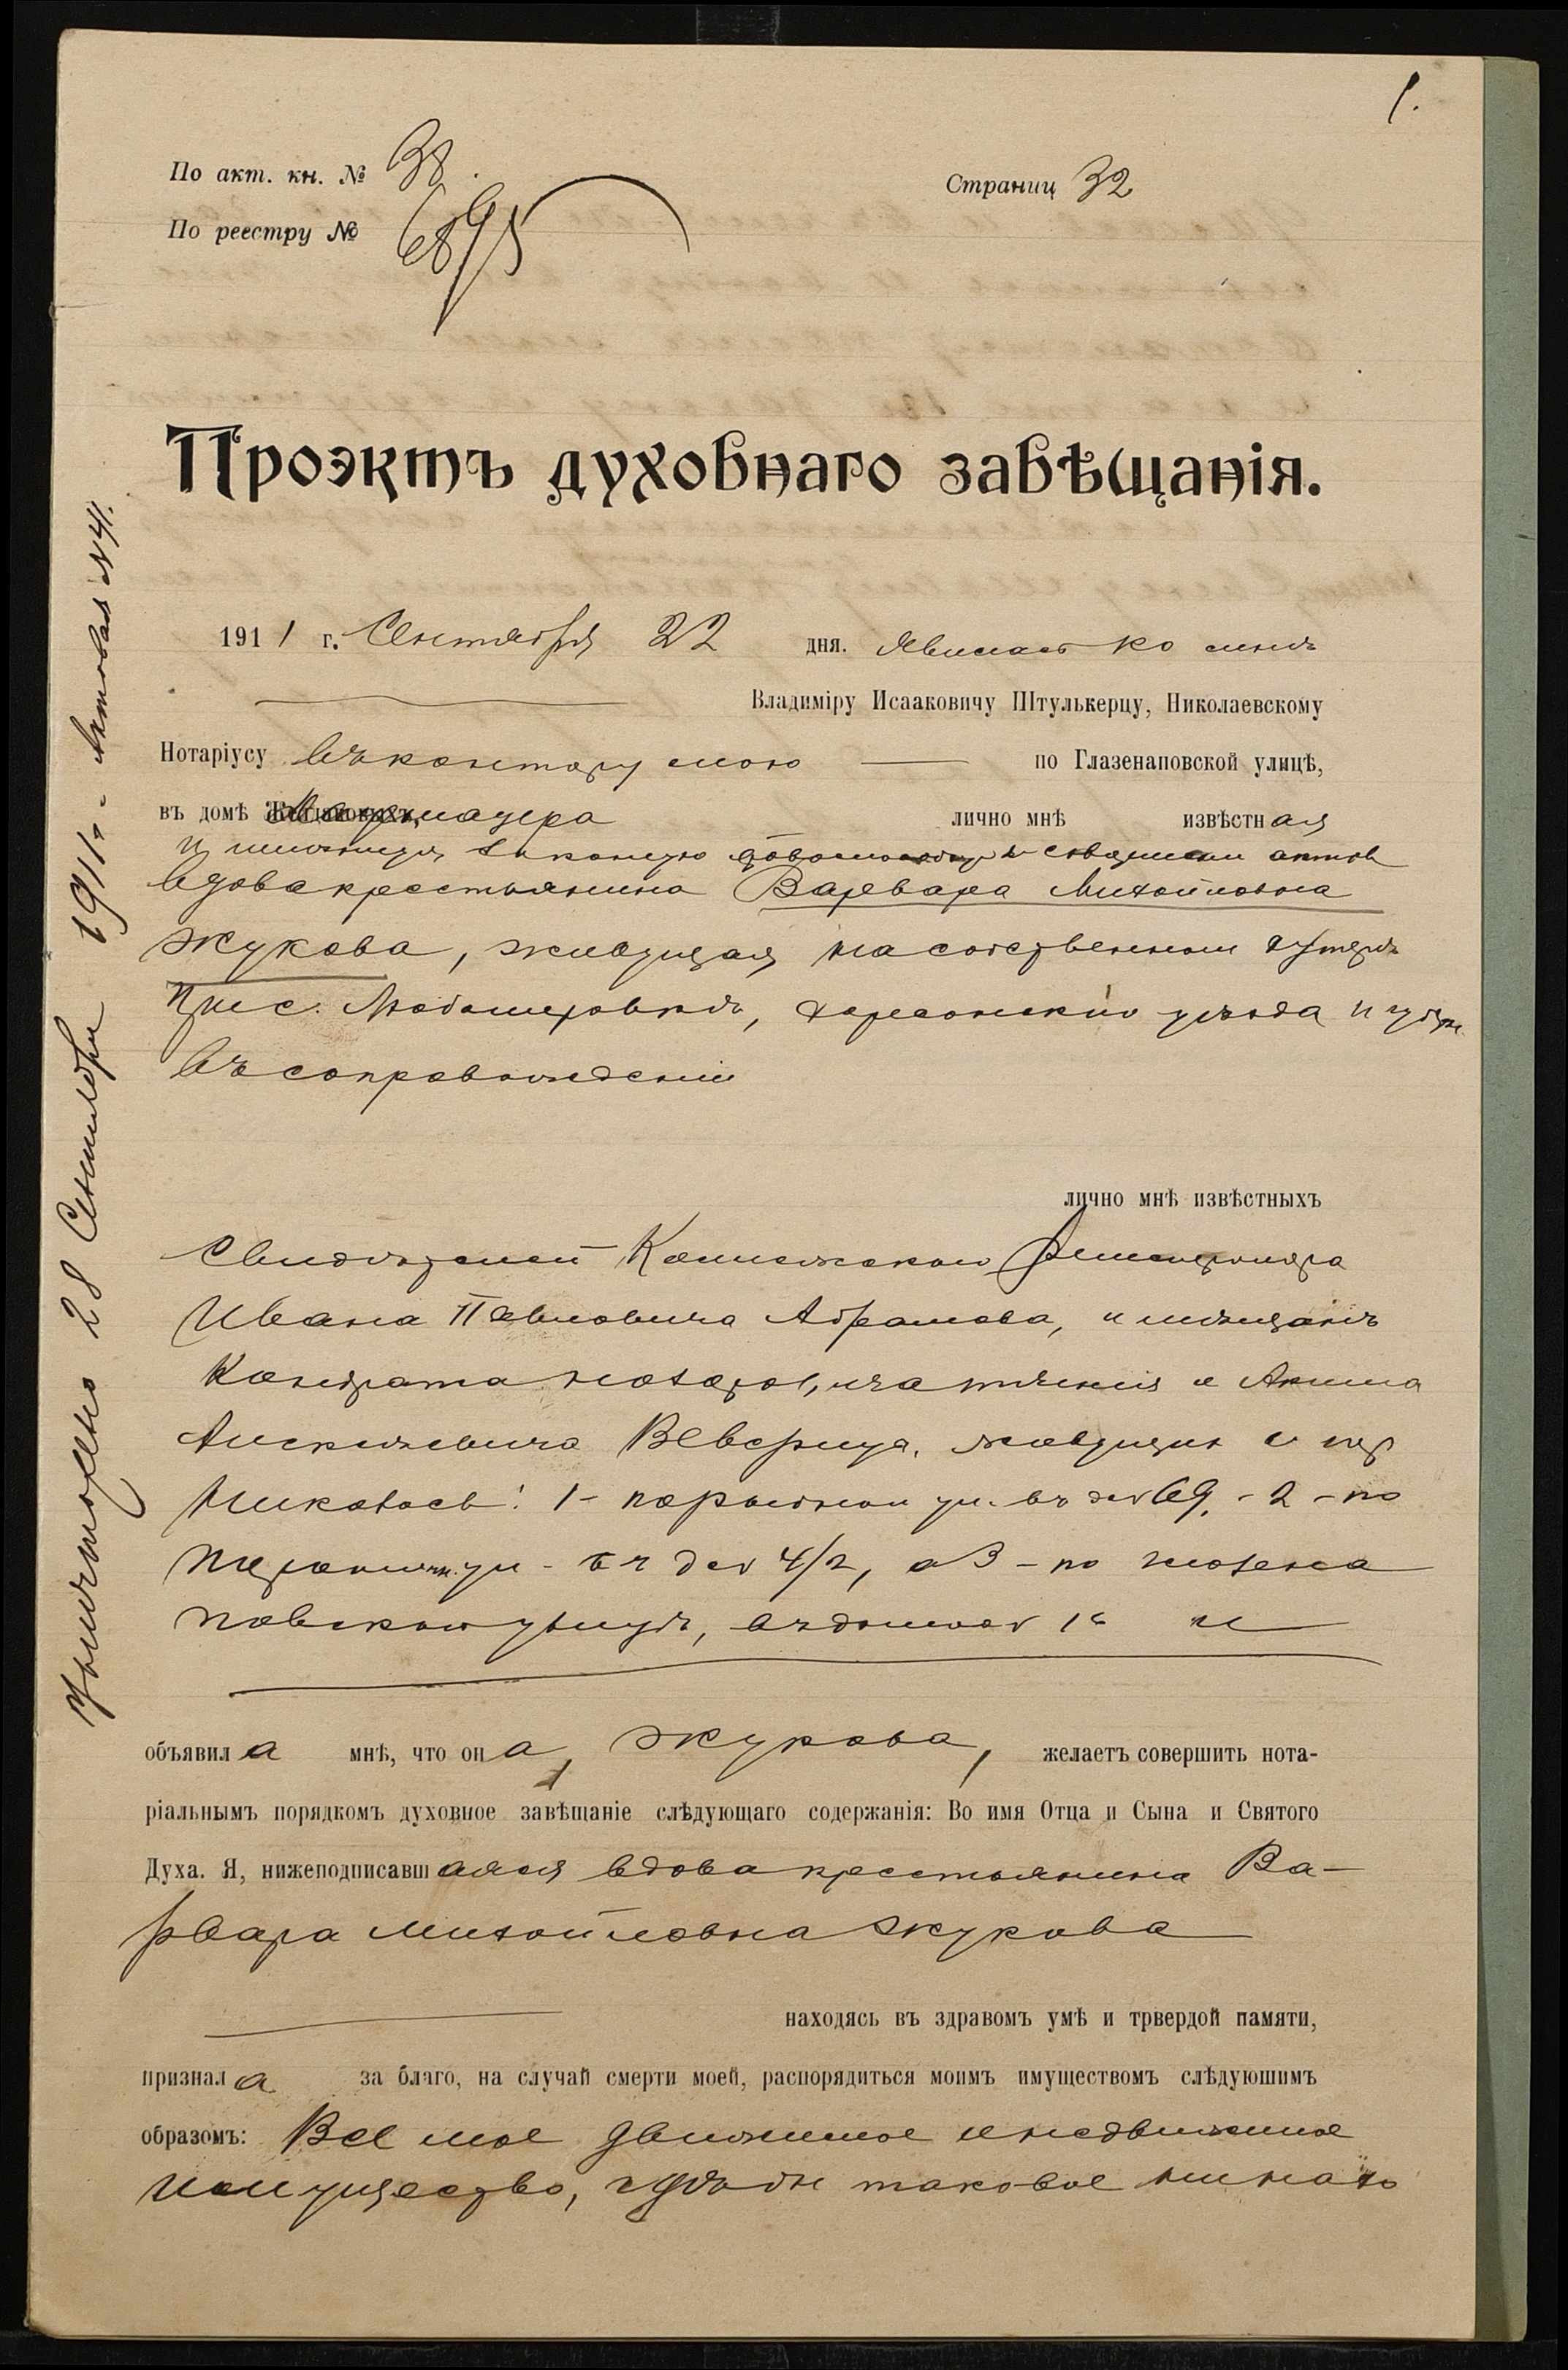 1.
По акт. кн. № 38.
Страниц 32
По реестру № 6895
Проэктъ духовнаго завѣщанія.
1911 г. Сентября 22 дня. Явилась ко мнѣ
Владиміру Исааковичу Штулькерцу, Николаевскому
Нотаріусу въ контору мою по Глазенаповской улицѣ,
въ домѣ лично мнѣ извѣстная
и имѣющая законную къ совершенію актовъ
вдова крестьянина Варвара Михайловна
Жукова, живущая на собственномъ хуторѣ
при с. Любомировкѣ, Херсонскаго уѣзда и губерн.
въ сопровожденіи
лично мнѣ извѣстныхъ
свидѣтелей Коллежскаго Регистратора
Ивана Павловича Абрамова, и мѣщанъ
Кондрата и Акима
Алексѣевича живущихъ въ гор.
Николаевѣ: 1- ул. въ д № 69, - 2 - по
ул - въ д № 4/2, а 3 - по Глазена
повской улицѣ, въ домѣ №
объявила мнѣ, что она, Жукова, желаетъ совершить нота-
ріальнымъ порядкомъ духовное завѣщаніе слѣдующаго содержанія: Во имя Отца и Сына и Святого
Духа. Я, нижеподписавшаяся вдова крестьянина Ва-
рвара Михайловна Жукова
находясь въ здравомъ умѣ и трвердой памяти,
признала за благо, на случай смерти моей, распорядиться моимъ имуществомъ слѣдуюшимъ
образомъ: Все мое движимое и недвижимое
имущество, гдѣ бы таковое ни на хо
Уничтожено 28 Сентября 1911 г. - Актовая № 41.